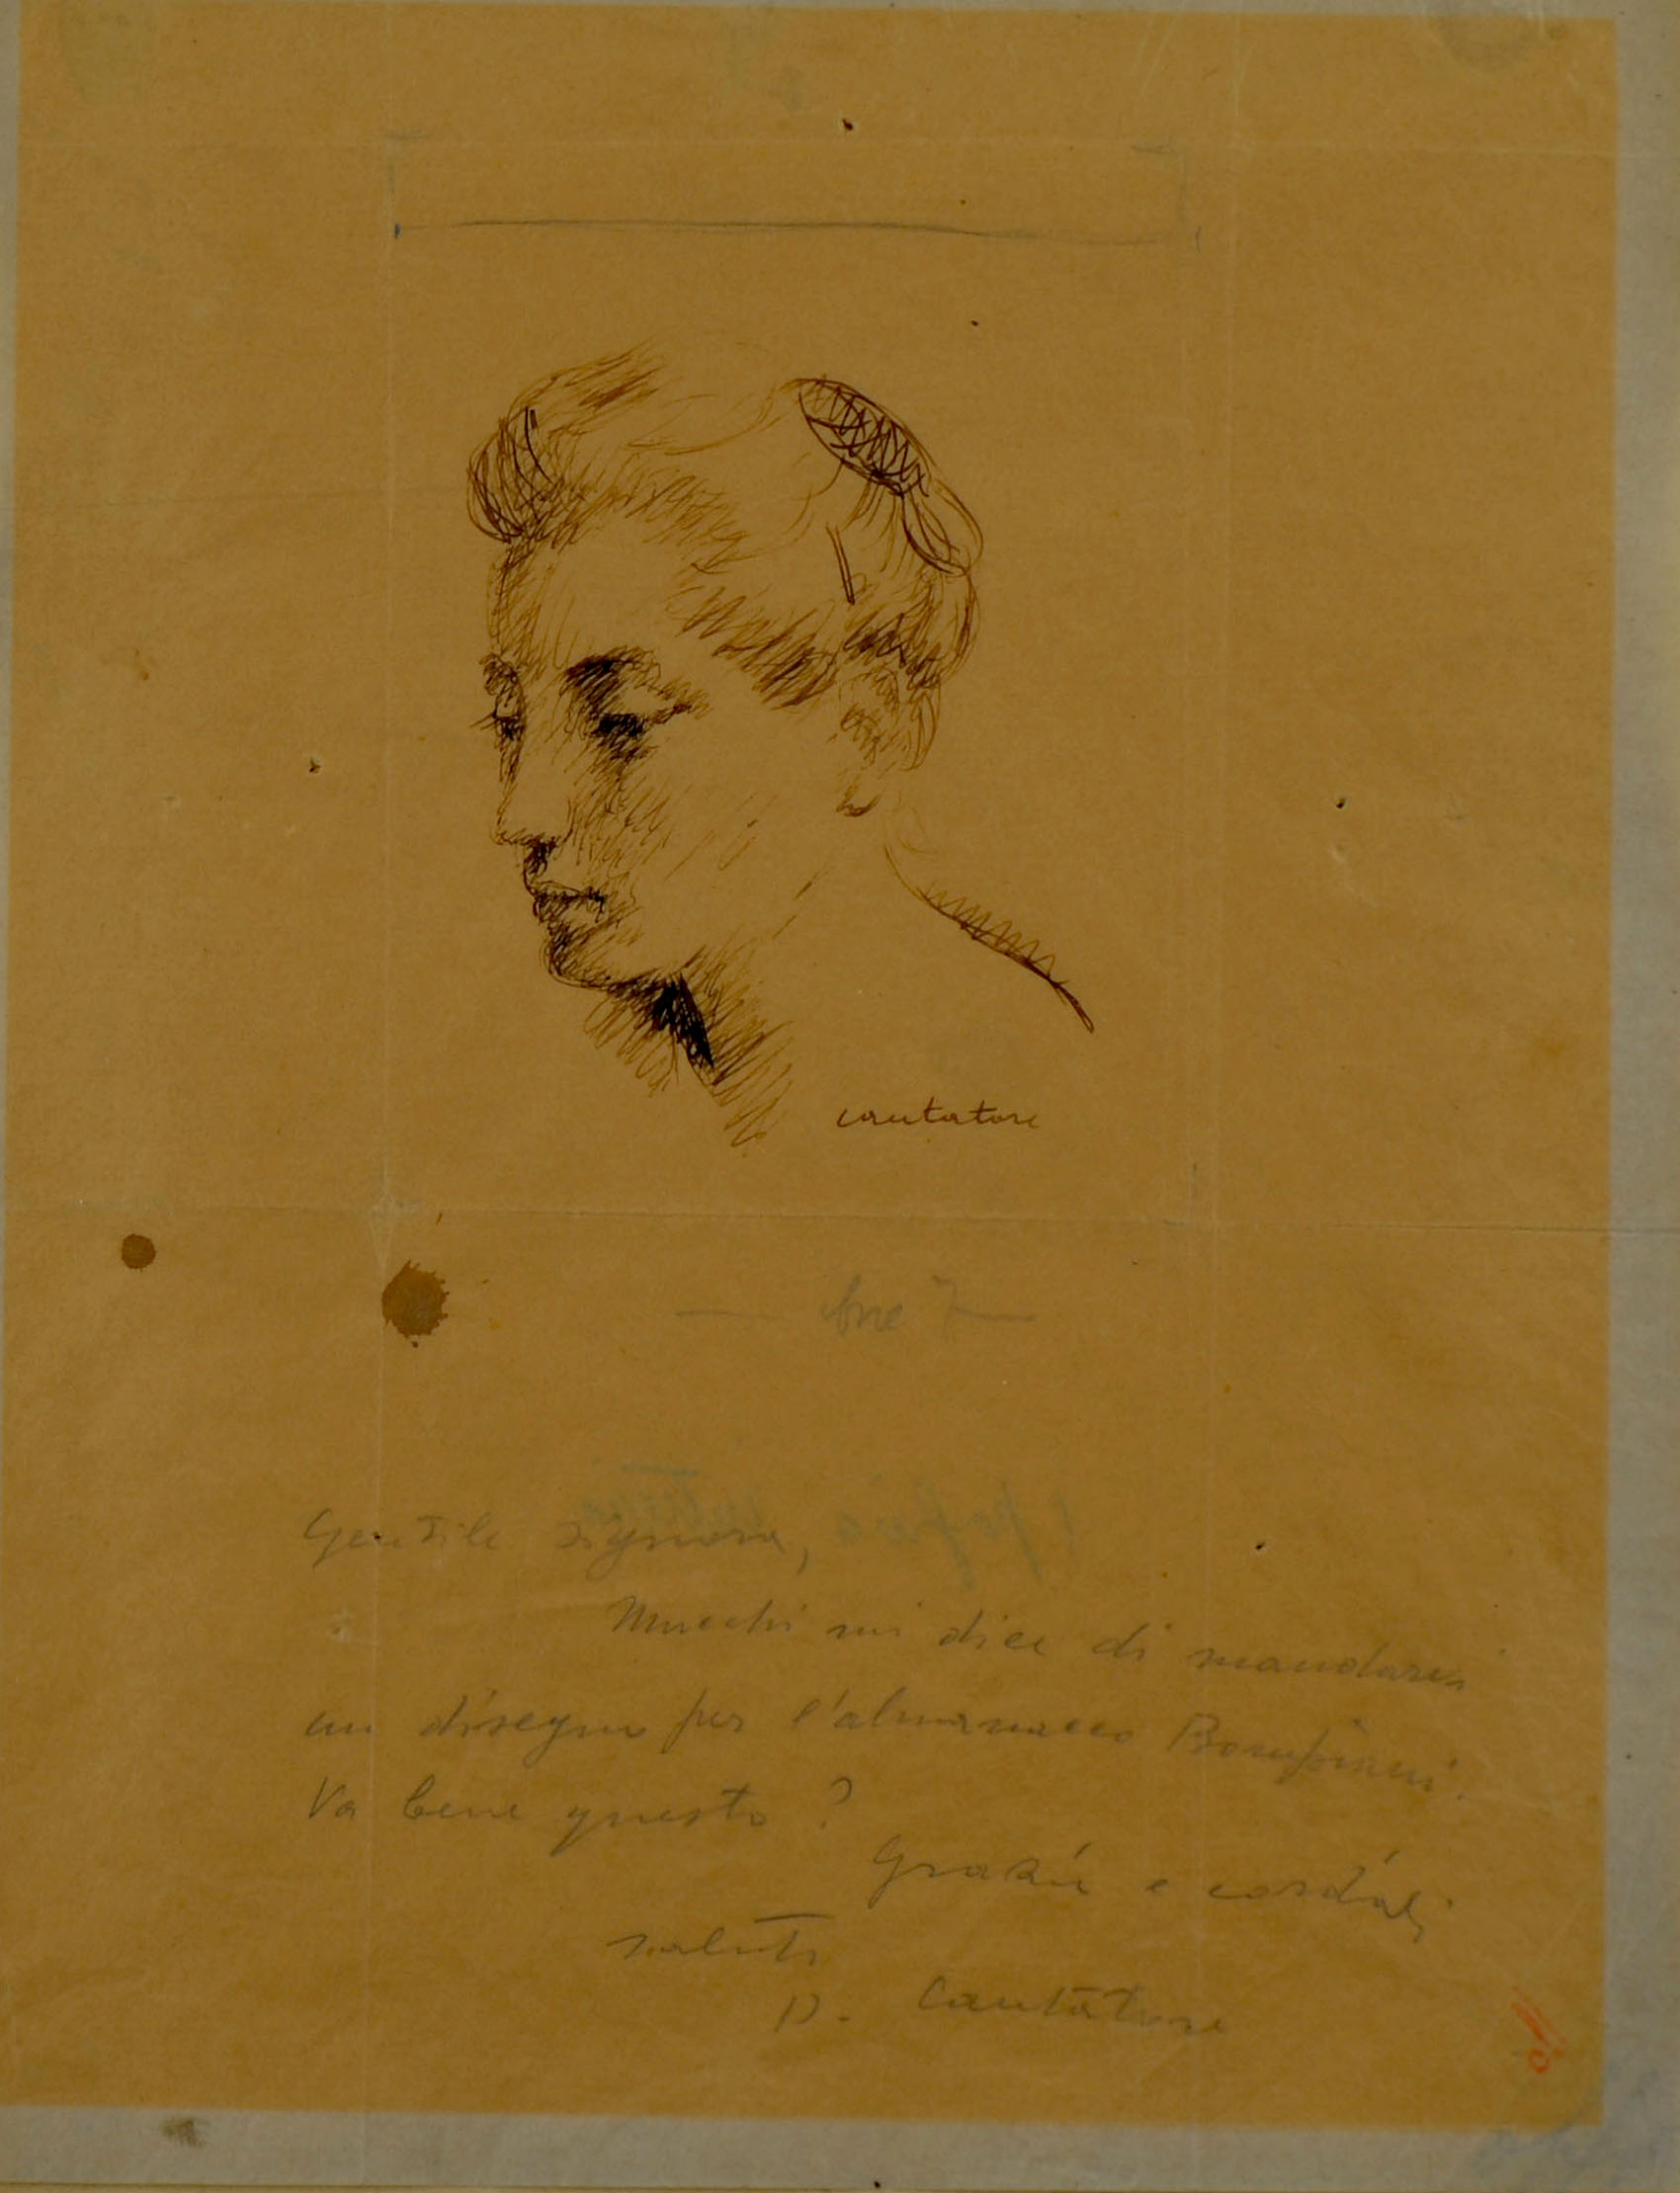 cantatore
Gentile signora,
Mucchi mi dice di mandare
un disegno per l'almanacco Bompiani.
Va bene questo?
Grazie e cordiali
saluti
D. Cantatore